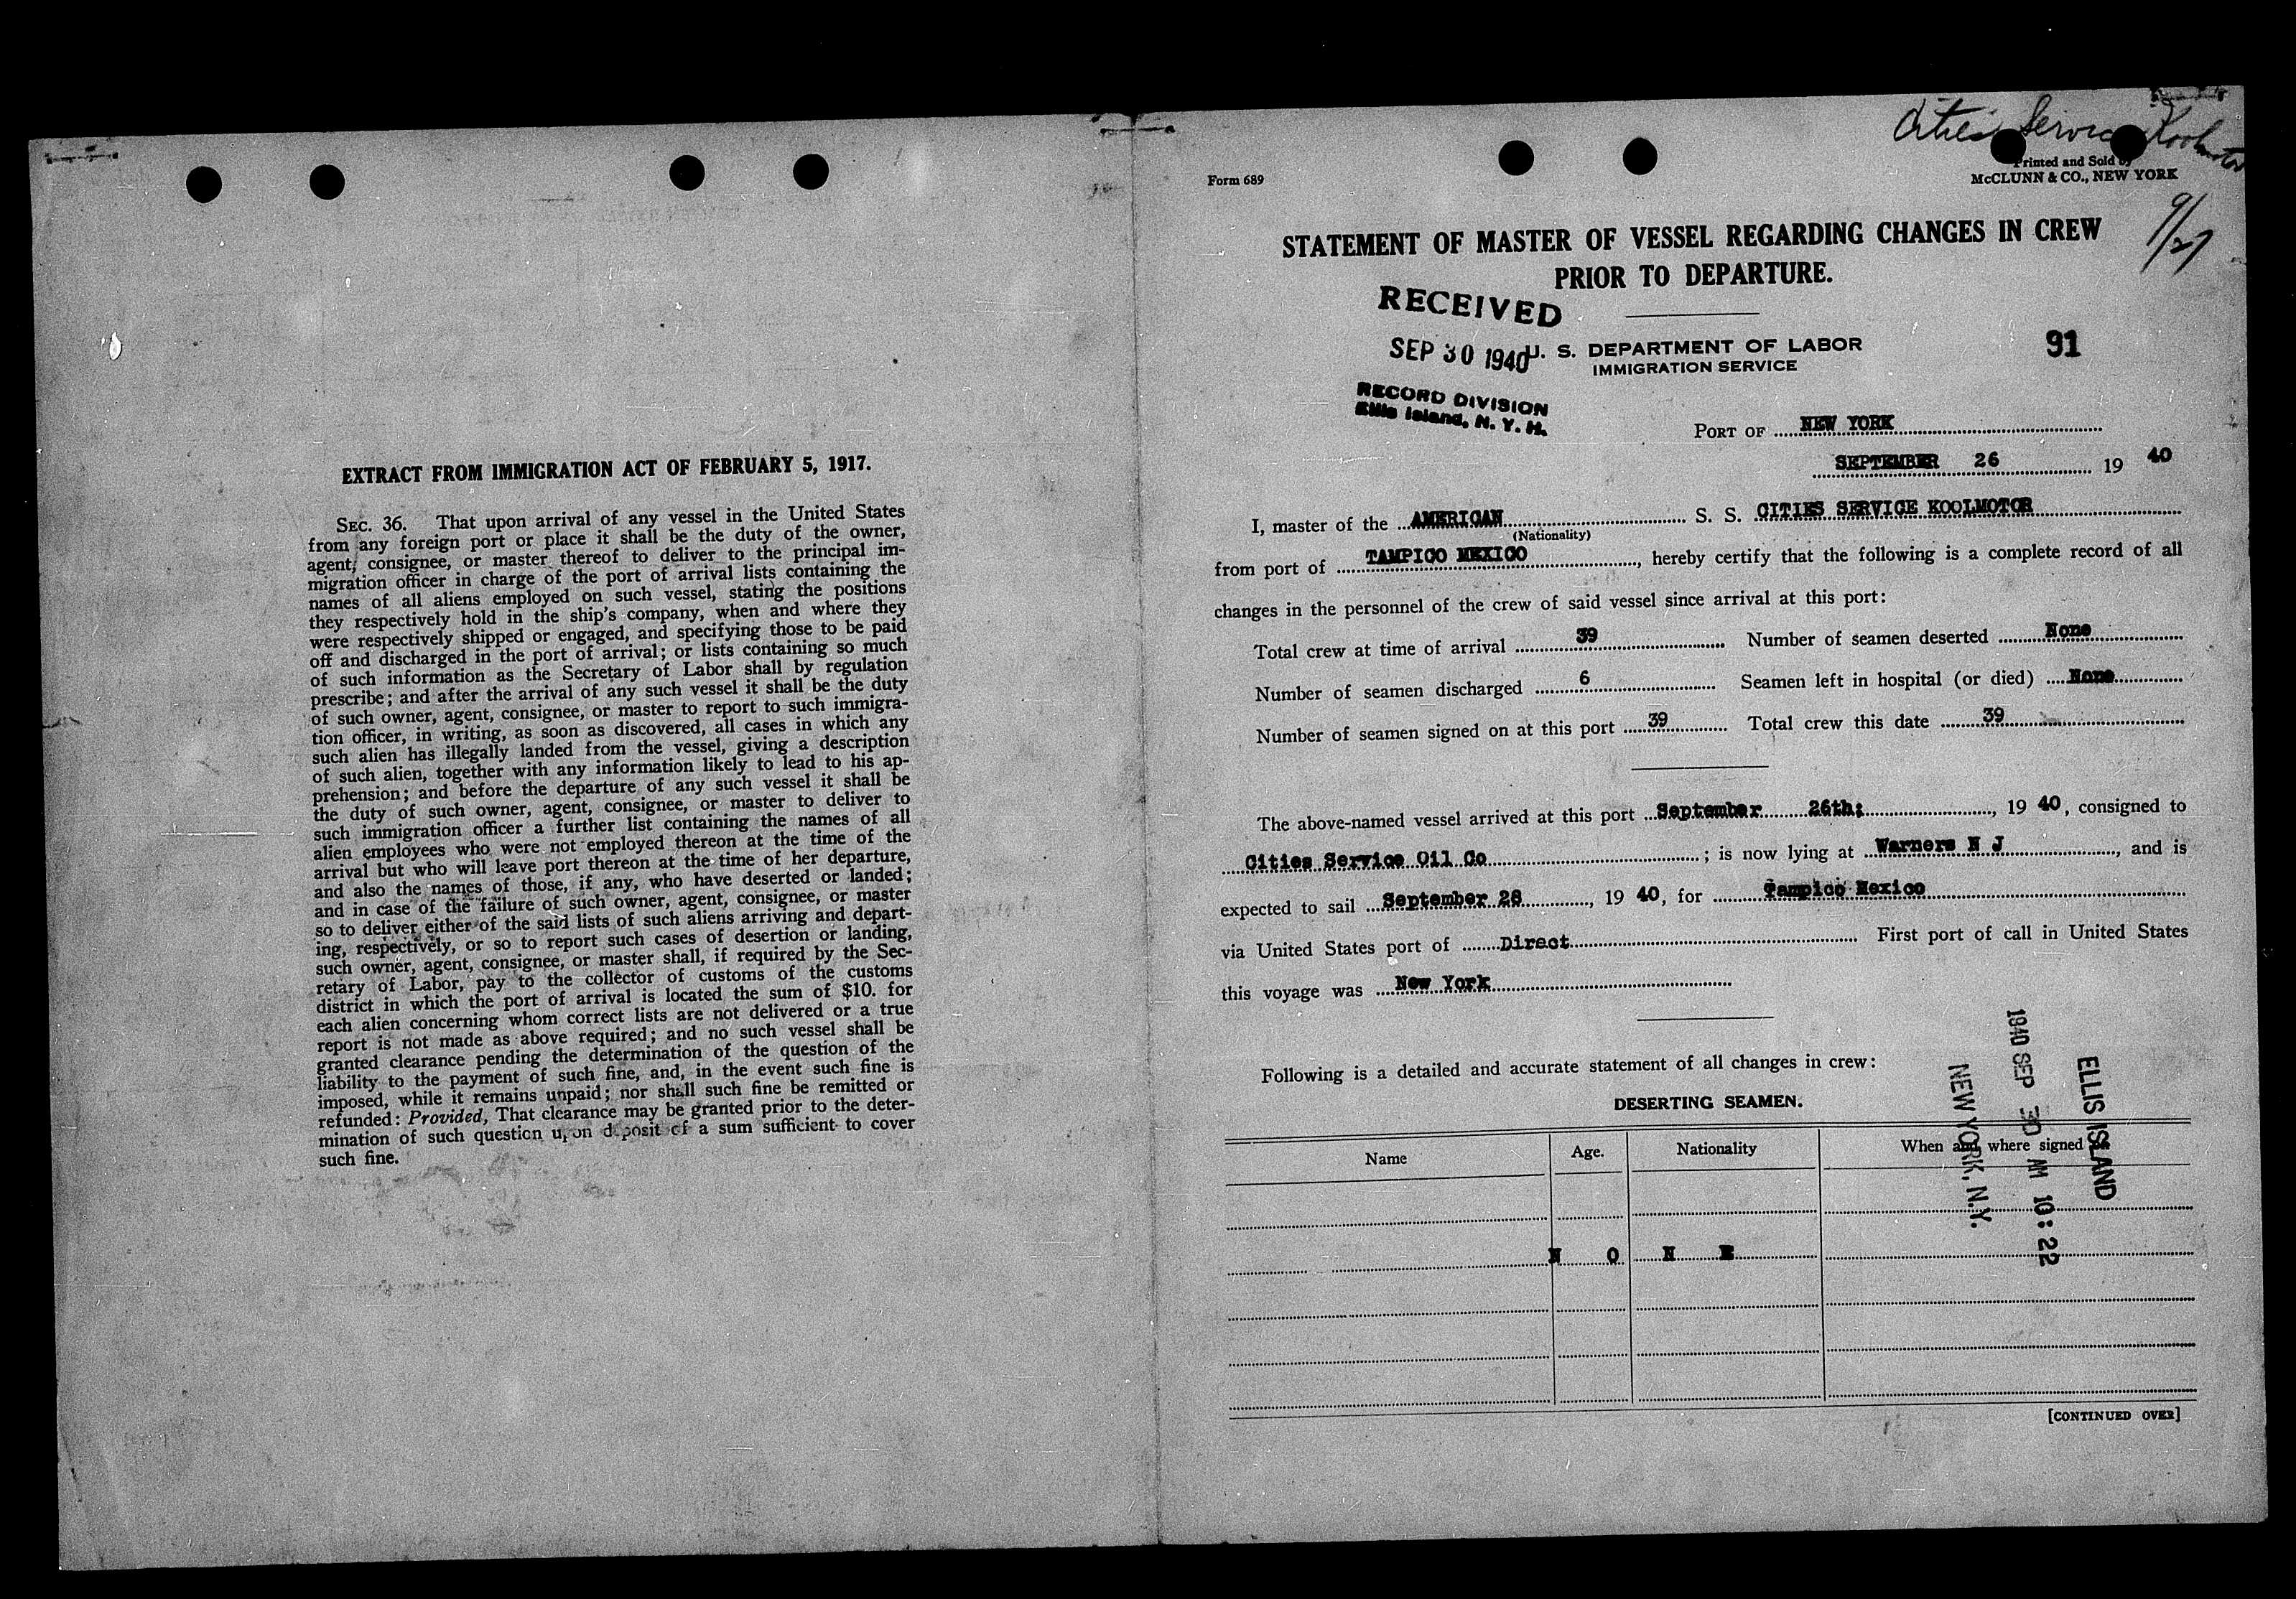 EXTRACT FROM IMMIGRATION ACT OF FEBRUARY 5, 1917.
SEC. 36. That upon arrival of any vessel in the United States
from any foreign port or place it shall be the duty of the owner,
agent, consignee, or master thereof to deliver to the principal im-
migration officer in charge of the port of arrival lists containing the
names of all aliens employed on such vessel, stating the positions
they respectively hold in the ship's company, when and where they
were respectively shipped or engaged, and specifying those to be paid
off and discharged in the port of arrival; or lists containing so much
of such information as the Secretary of Labor shall by regulation
prescribe; and after the arrival of any such vessel it shall be the duty
of such owner, agent, consignee, or master to report to such immigra-
tion officer, in writing, as soon as discovered, all cases in which any
such alien has illegally landed from the vessel, giving a description
of such alien, together with any information likely to lead to his ap-
prehension; and before the departure of any such vessel it shall be
the duty of such owner, agent, consignee, or master to deliver to
such immigration officer a further list containing the names of all
alien employees who were not employed thereon at the time of the
arrival but who will leave port thereon at the time of her departure,
and also the names of those, if any, who have deserted or landed;
and in case of the failure of such owner, agent, consignee, or master
so to deliver either of the said lists of such aliens arriving and depart-
ing, respectively, or so to report such cases of desertion or landing,
such owner, agent, consignee, or master shall, if required by the Sec-
retary of Labor, pay to the collector of customs of the customs
district in which the port of arrival is located the sum of $10. for
each alien concerning whom correct lists are not delivered or a true
report is not made as above required; and no such vessel shall be
granted clearance pending the determination of the question of the
liability to the payment of such fine, and, in the event such fine is
imposed, while it remains unpaid; nor shall such fine be remitted or
refunded: Provided, That clearance may be granted prior to the deter-
mination of such question upon deposit of a sum sufficient to cover
such fine.
Cities Service Koolmotor
Form 689
Printed and Sold by
McCLUNN & CO., NEW YORK
9/27
STATEMENT OF MASTER OF VESSEL REGARDING CHANGES IN CREW
PRIOR TO DEPARTURE.
RECEIVED
SEP 30 1940
RECORD DIVISION
Ellis Island, N. Y. H.
U. S. DEPARTMENT OF LABOR
IMMIGRATION SERVICE
91
PORT OF NEW YORK
SEPTEMBER 26 19 40
I, master of the AMERICAN S. S. CITIES SERVICE KOOLMOTOR
(Nationality)
from port of TAMPICO MEXICO, hereby certify that the following is a complete record of all
changes in the personnel of the crew of said vessel since arrival at this port:
Total crew at time of arrival 39 Number of seamen deserted None
Number of seamen discharged 6 Seamen left in hospital (or died) None
Number of seamen signed on at this port 39 Total crew this date 39
The above-named vessel arrived at this port September 26th; , 19 40, consigned to
Cities Service Oil Co ; is now lying at Warners N J , and is
expected to sail September 28 , 19 40, for Tampico Mexico
via United States port of Direct First port of call in United States
this voyage was New York
Following is a detailed and accurate statement of all changes in crew:
DESERTING SEAMEN.
Name Age. Nationality When and where signed
N O N E
ELLIS ISLAND
1940 SEP 30 AM 10:22
NEW YORK, N.Y.
[CONTINUED OVER]